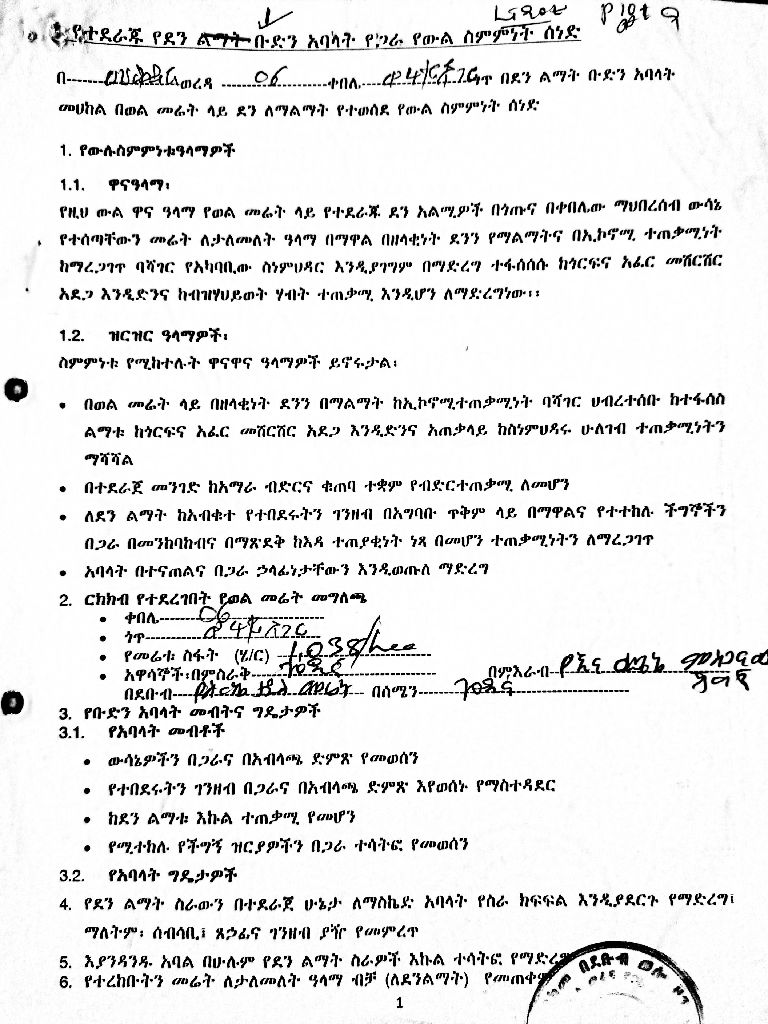 የተደራጁ የደን ልማት ቡድን አባላት የጋራ የውል ስምምነት ሰነድ
በ ወረዳ 06 ቀበሌ ጎጥ በደን ልማት ቡድን አባላት
መሀከል በወል መሬት ላይ ደን ለማልማት የተወሰደ የውል ስምምነት ሰነድ
1. የውሉስምምነቱዓላማዎች
1.1. ዋናዓላማ፡
የዚህ ውል ዋና ዓላማ የወል መሬት ላይ የተደራጁ ደን አልሚዎች በጎጡና በቀበሌው ማህበረሰብ ውሳኔ
የተሰጣቸውን መሬት ለታለመለት ዓላማ በማዋል በዘላቂነት ደንን የማልማትና በኢኮኖሚ ተጠቃሚነት
ከማረጋገጥ ባሻገር የአካባቢው ስነምህዳር እንዲያገግም በማድረግ ተፋሰሰሱ ከጎርፍና አፈር መሸርሸር
አደጋ እንዲድንና ከብዝሃህይወት ሃብት ተጠቃሚ እንዲሆን ለማድረግነው፡፡
1.2. ዝርዝር ዓላማዎች፡
ስምምነቱ የሚከተሉት ዋናዋና ዓላማዎች ይኖሩታል፡
• በወል መሬት ላይ በዘላቂነት ደንን በማልማት ከኢኮኖሚተጠቃሚነት ባሻገር ህብረተሰቡ ከተፋሰስ
ልማቱ ከጎርፍና አፈር መሸርሸር አደጋ እንዲድንና አጠቃላይ ከስነምህዳሩ ሁለገብ ተጠቃሚነትን
ማሻሻል
• በተደራጀ መንገድ ከአማራ ብድርና ቁጠባ ተቋም የብድርተጠቃሚ ለመሆን
• ለደን ልማት ከአብቁተ የተበደሩትን ገንዘብ በአግባቡ ጥቅም ላይ በማዋልና የተተከሉ ችግኞችን
በጋራ በመንከባከብና በማጽደቅ ከእዳ ተጠያቂነት ነጻ በመሆን ተጠቃሚነትን ለማረጋገጥ
• አባላት በተናጠልና በጋራ ኃላፊነታቸውን እንዲወጡለ ማድረግ
2. ርክክብ የተደረገበት የወል መሬት መግለጫ
• ቀበሌ 06
• ጎጥ
• የመሬቱ ስፋት (ሄ/ር)
• አዋሳኞች፡በምስራቅ በምእራብ
በደቡብ በሰሜን
3. የቡድን አባላት መብትና ግዴታዎች
3.1. የአባላት መብቶች
• ውሳኔዎችን በጋራና በአብላጫ ድምጽ የመወሰን
• የተበደሩትን ገንዘብ በጋራና በአብላጫ ድምጽ እየወሰኑ የማስተዳደር
• ከደን ልማቱ እኩል ተጠቃሚ የመሆን
• የሚተከሉ የችግኝ ዝርያዎችን በጋራ ተሳትፎ የመወሰን
3.2. የአባላት ግዴታዎች
4. የደን ልማት ስራውን በተደራጀ ሁኔታ ለማስኬድ አባላት የስራ ክፍፍል እንዲያደርጉ የማድረግ፤
ማለትም፡ ሰብሳቢ፤ ጸኃፊና ገንዘብ ያዥ የመምረጥ
5. እያንዳንዱ አባል በሁሉም የደን ልማት ስራዎች እኩል ተሳትፎ የማድረግ
6. የተረከቡትን መሬት ለታለመለት ዓላማ ብቻ (ለደንልማት)
1